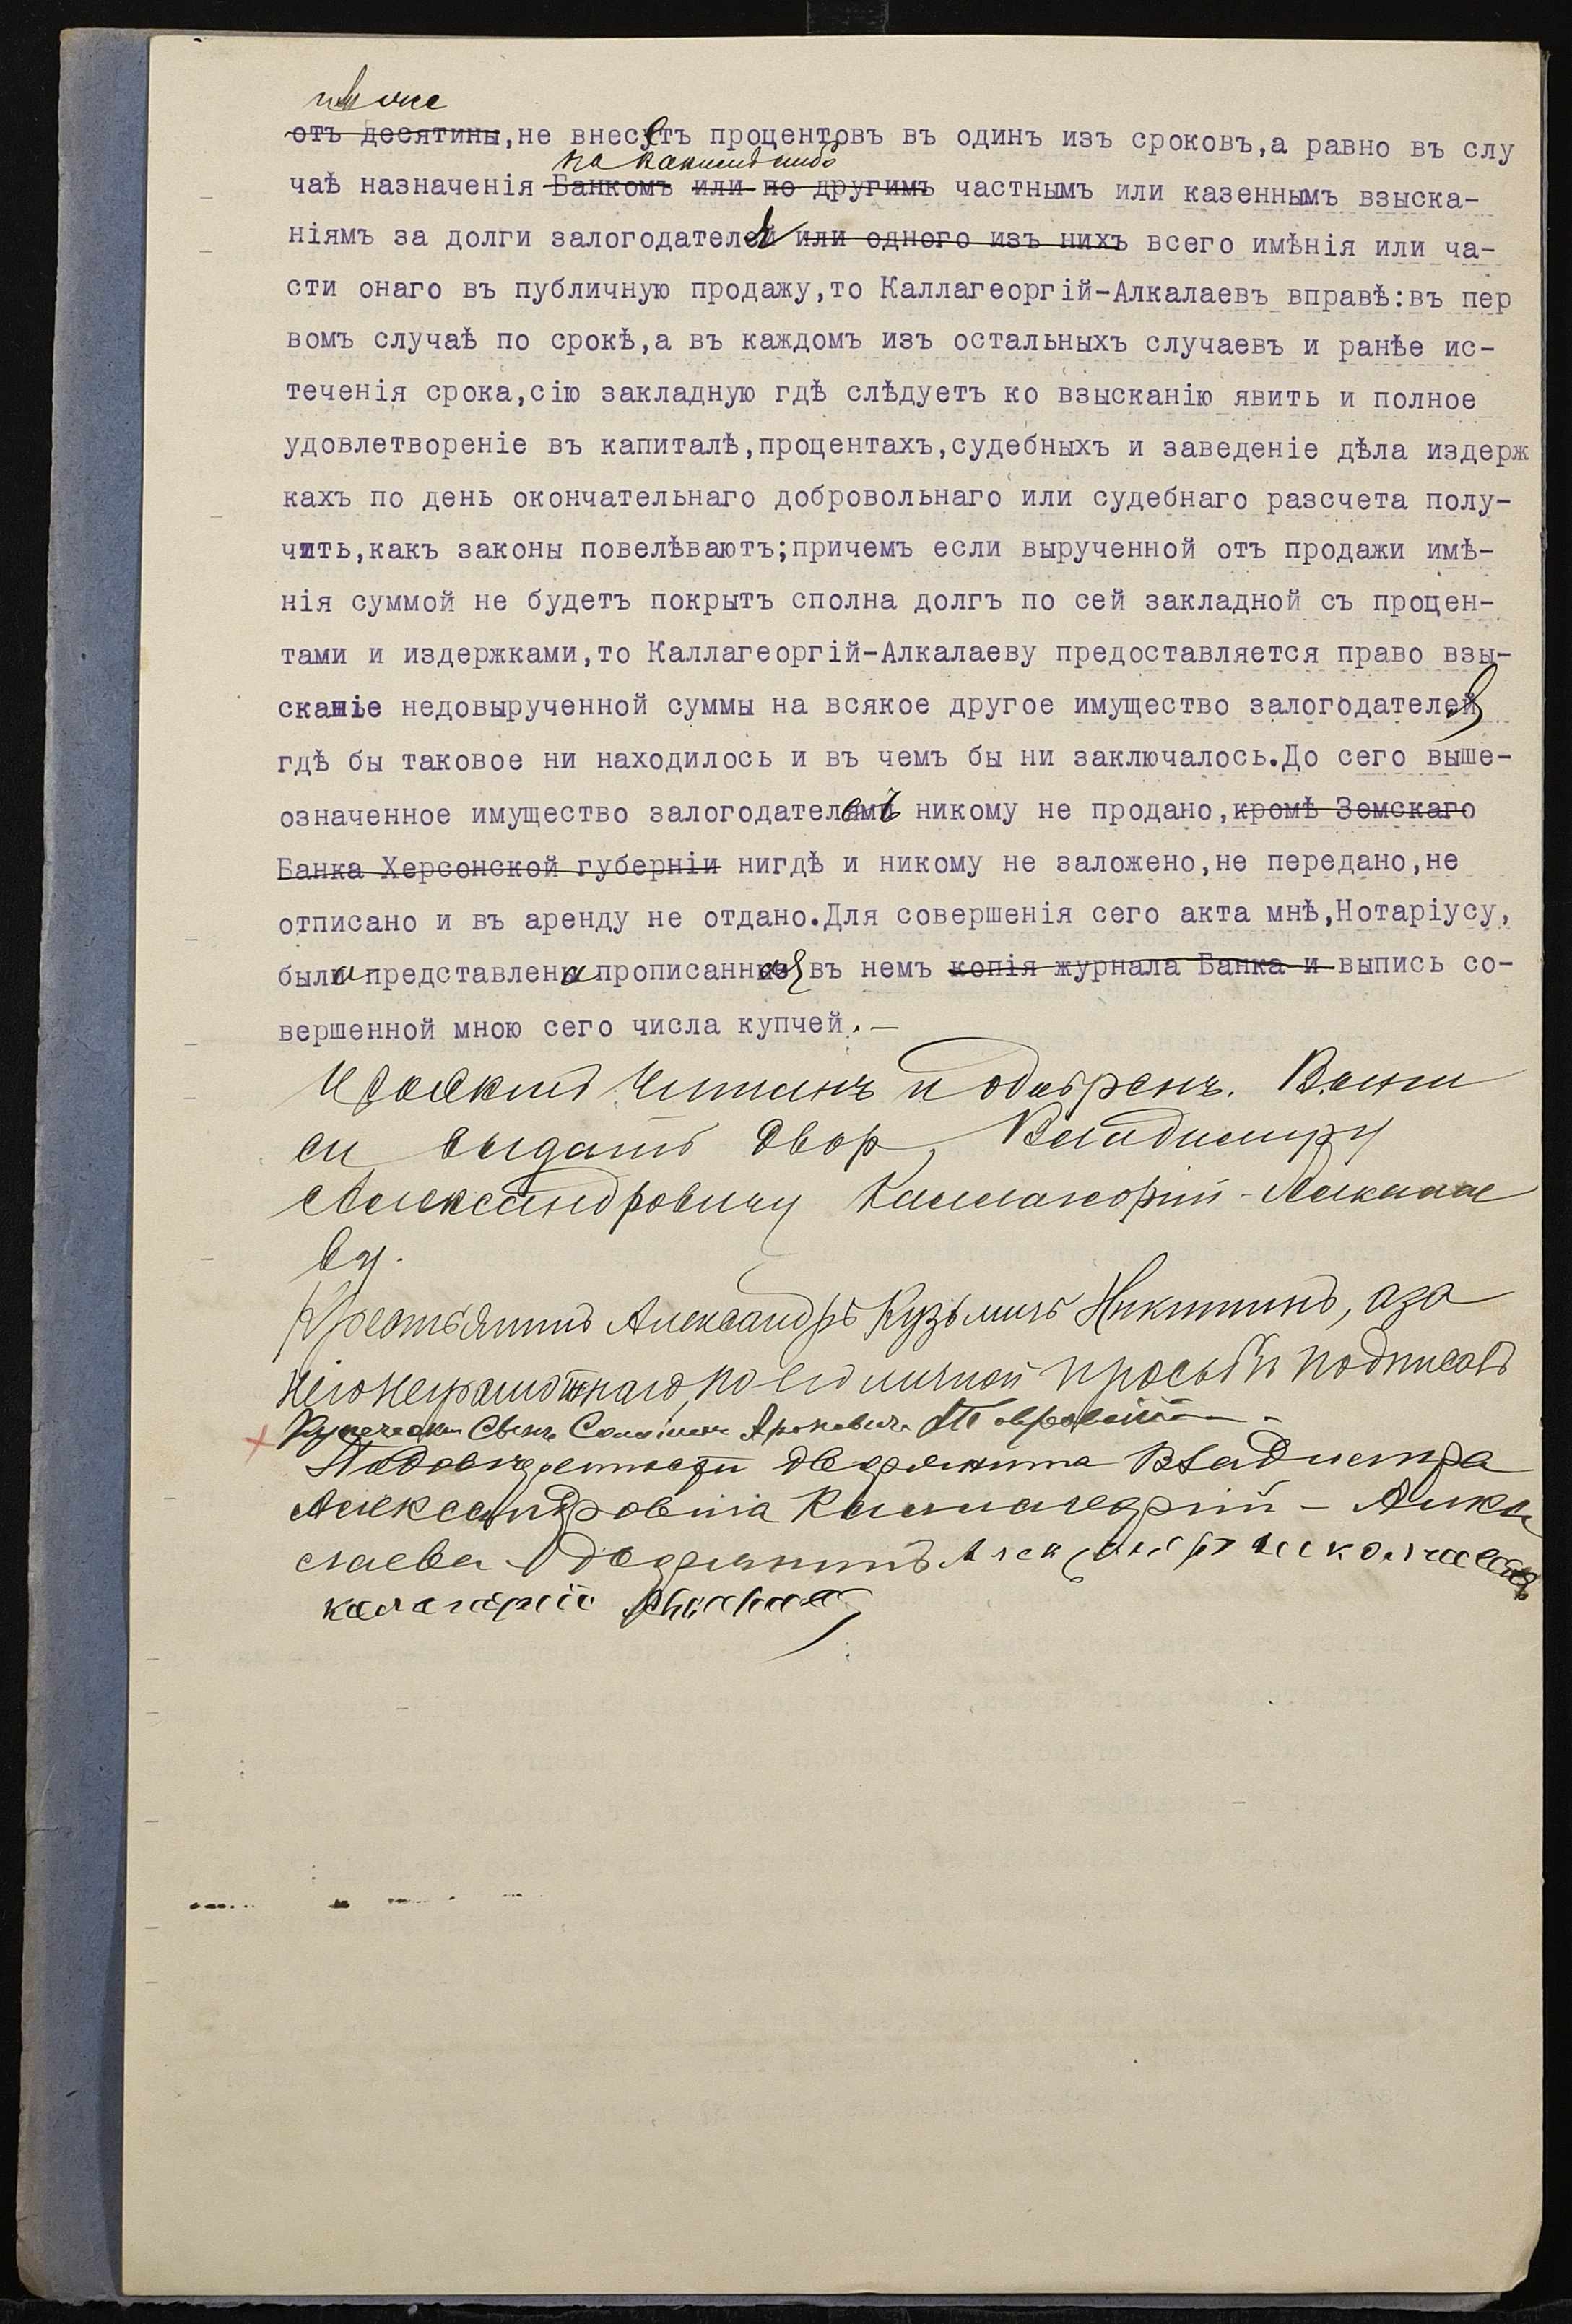 отъ десятины,не внесетъ процентовъ въ одинъ изъ сроковъ,а равно въ слу
по какимъ либо
чаѣ назначенія Банкомъ или по другимъ частнымъ или казеннымъ взыска-
ніямъ за долги залогодателя или одного изъ нихъ всего имѣнія или ча-
сти онаго въ публичную продажу,то Каллагеоргій-Алкалаевъ вправѣ:въ пер
вомъ случаѣ по срокѣ,а въ каждомъ изъ остальныхъ случаевъ и ранѣе ис-
теченія срока,сію закладную гдѣ слѣдуетъ ко взысканію явить и полное
удовлетвореніе въ капиталѣ,процентахъ,судебныхъ и заведеніе дѣла издерж
кахъ по день окончательнаго добровольнаго или судебнаго разсчета полу-
чить,какъ законы повелѣваютъ;причемъ если вырученной отъ продажи имѣ-
нія суммой не будетъ покрытъ сполна долгъ по сей закладной съ процен-
тами и издержками,то Каллагеоргій-Алкалаеву предоставляется право взы-
сканіе недовырученной суммы на всякое другое имущество залогодателя
гдѣ бы таковое ни находилось и въ чемъ бы ни заключалось.До сего выше-
означенное имущество залогодателемъ никому не продано,кромѣ Земскаго
Банка Херсонской губерніи нигдѣ и никому не заложено,не передано,не
отписано и въ аренду не отдано.Для совершенія сего акта мнѣ,Нотаріусу,
была представлена прописанная въ немъ копія журнала Банка и выпись со-
вершенной мною сего числа купчей.—
Проектъ читанъ и одобренъ. Выпи
си выдать двор. Владимиру
Александровичу Каллагеоргій-Алкалае
ву.
Крестьянинъ Александръ Кузьмичъ Никитинъ, а за
него неграмотнаго, по его личной просьбѣ подписалъ
Купеческій Сынъ Соломонъ Ароновичъ
По довѣренности дворянина Владимира
Александровича Каллагеоргій-Алка
лаева дворянинъ Александръ
Калагеоргій Алкалаевъ